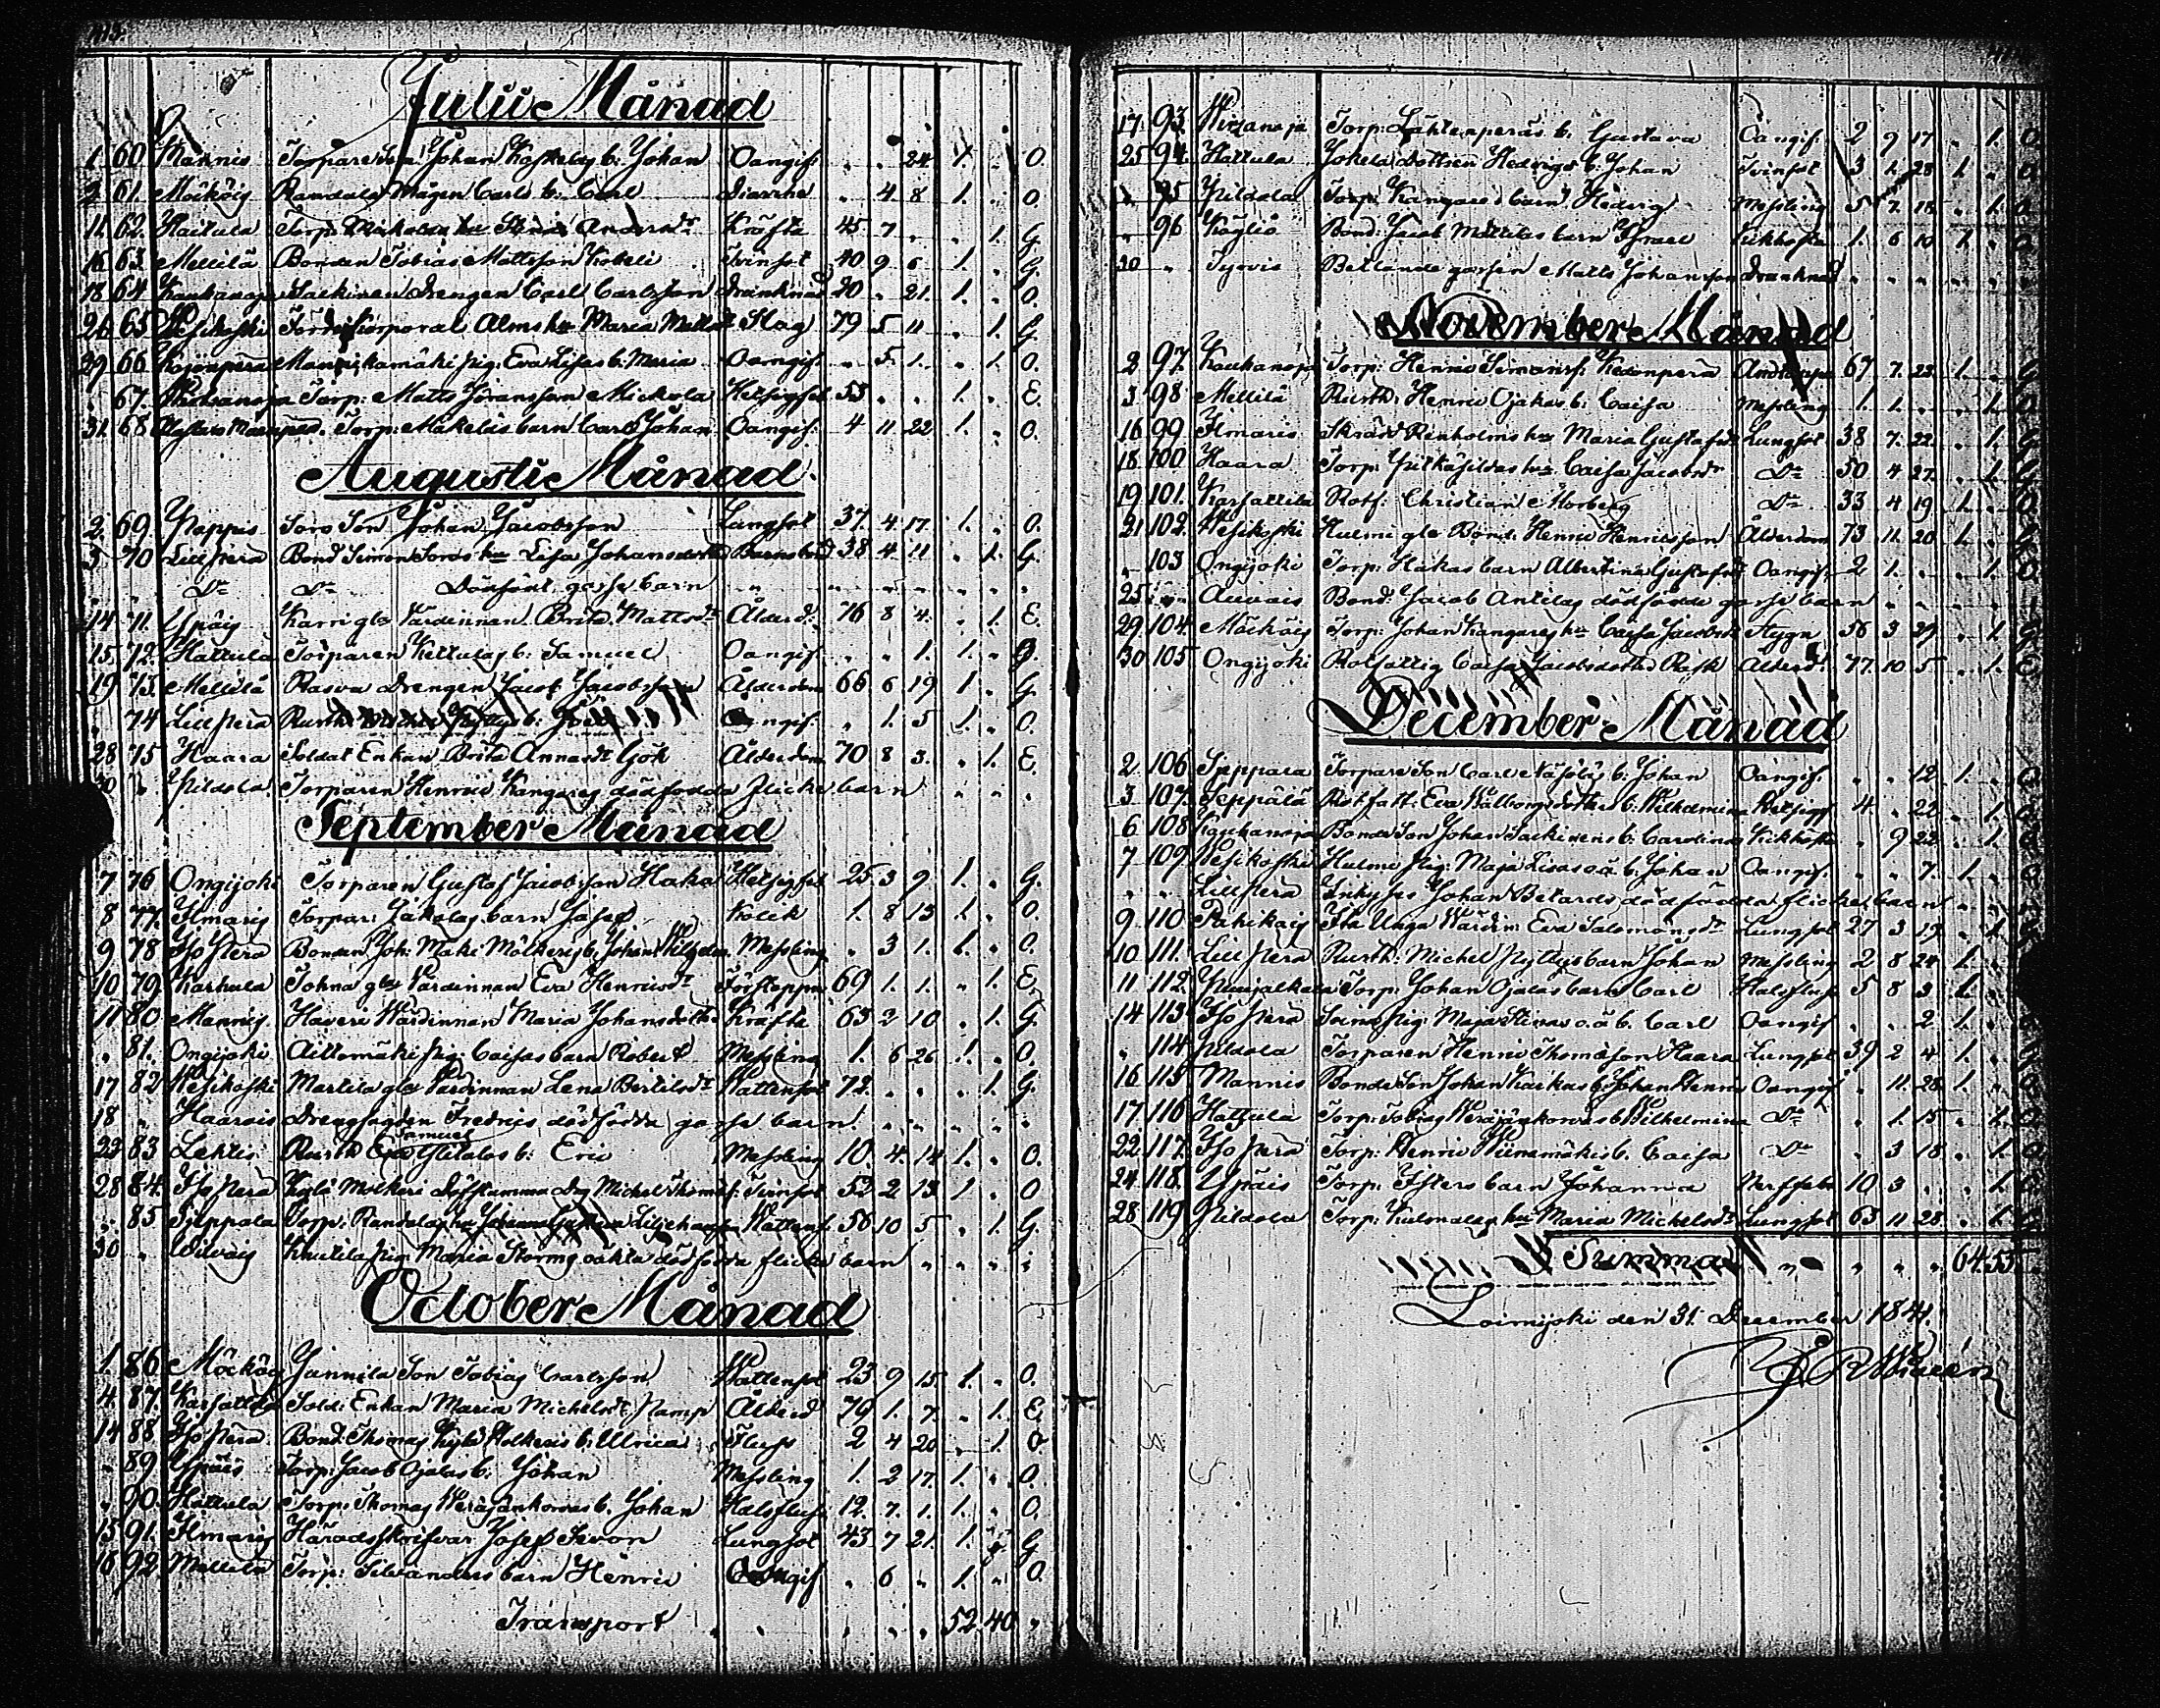 Julii Månad
1. 60 Mannis Torpare Son Johan Koskelas b: Johan Oangif: " " 24 1. " O.
2 61. Mäckäis Randala Mågen Carls b: Carl Diarrhé " 4 8 1. " O.
11. 62. Haitula Torp: Mickolas hu Stina Andersdr Kräfta 45 7 " " 1. G.
16 63. Mellilä Bonden Tobias Mattsson Kokeli Tvinsot 40 9 6 1. " G.
18 64. Kauhanoja Sackinen Drengen Carl Carlsson Dränknad 20 " 21. 1. " O.
26 65 Wesikoski Torp: Corporal Alms hu Maria Matts Slag 79 5 11 " 1. G.
29 66 Kojonperä Mannikamäki pig: Eva Lisas b: Maria Oangif. " 5. 1. " 1. O.
" 67. Torp: Matts Göransson Mickola Hetsigfeb 53 " " 1. " E.
31. 68 Torp: Mäkeläs barn Carl Johan Oangif: 4 11 22 1. " O.
Augusti Månad.
2. 69. Pappis Soro Son Johan Jacobsson Lungsot 37. 4. 17. 1. " O.
3 70 Lillperä Bond Simon Soros hu Lisa Johansdotter Barnsbörd 38 4. 11 " 1. G.
Do Do Dödfödt gosse barn " " " " " " "
14 71. Ypäis Karri gle Värdinnan Brita Mattsdr Ålderd: 76 8 4. " 1. E.
15 72. Hattula Torparen Kettulas b: Samuel Oangif. " " 1. 1. " O.
19 73. Mellilä Rasva Drengen Jacob Jacobsson Ålderdom 66 6 19 1 " G.
" 74 Lillperä Rusth: b: Oangif: " 1. 5 1. " O.
28 75 Haara Soldat Enkan Brita Annasdr Gök Ålderdom 70 8 3. " 1. E.
30 " Pildola. Torparen Henric Kangares dödfödda flicke barn " " "
September Månad
7 76 Ongijoki Torparen Gustaf Jacobsson Haka Hetsigfeb 25 3 9 1. " G.
8 77. Ilmaris Torpar: Jakolas barn Josef Kolik 1. 8 13 1. " O.
9 78 Isoperä Bonden Joh: Maki Mälkeris b: Johan Wilhelm Messling " 3 1. 1. " O.
10 79 Karhula Tohna gle Värdinnan Eva Henricsdr Förstoppn 69 1. 1. " 1. E.
11 80 Mannis. Haveri Wärdinnan Maria Johansdotter Kräfta 63 2 10 " 1. G.
" 81. Ongijoki Aittomäki Pig: Caisas barn Robert Messling 1. 6 26 1. " O.
17 82 Wesikoski Martila gle Värdinnan Lena Bertilsdr Wattensot 72. " " " 1. G.
18 " Haarois Drengfogden Fredrics dödfödda gosse barn. " " " " "
Samuel
23 83 Lehtis Rusth b: Eric Messling 10. 4. 14 1. " O.
28 84. Isoperä Kylä Mälkeri Döfstumma Dr: Michel Thomass: Tvinsot 52 2 13 1 " O
" 85 Seppala Torp: Randalas hu Liljehammar Wattensot 56 10 5 " 1. G.
30 " Wilvais Knutila Pig: Maria Storms oäkta dödfödda flicke barn " " " "
October Månad
1. 86 Mäckäis Junnila Son Tobias Carlsson Wattensot 23 9 15. 1. " O.
4. 87. Karsattila Sold: Enkan Maria Michelsdr Kamp Ålderd 79 1. 7. " 1. E.
14 88 Isoperä Bond: Thomas Kylä Mälkeris b: Ulrica Fluss 2 4 20 " 1. O
" 89 Ypäis Torp: Jacob Ojalas b: Johan Messling 1. 2 17. 1. " O.
" 90. Hattula Torp: Thomas Weräjänkorvas b. Johan Halsfluss 12. 7. 1. 1. " O.
15 91. Ilmaris Häradsskrifvar Josef Sevon Lungsot 43. 7 21. 1. " G
18 92. Mellilä Torp: Silvanders barn Henric Oangif " 6 " 1. " O.
Transport " " " " " 52. 40. "
17. 93. Wirranoja Torp: Lähtenperäs b. Gustava Oangif. 2 9 17 " 1. O.
25 94. Hattula Jokela Dottren Hedvigs b: Johan Tvinsot 3 1. 28 1 " O
" 95 Pildola Torp: Kangares barn Hedvig Messling 5 7. 18. " 1. O
" 96 Köyliö Bond: Jacob Mattilas barn Israel Kikhosta 1. 6 10 1. " O
30 " Tyrvis Betlande gossen Matts Johansson Dränknad " " " " " "
November Månad
2 97. Kauhanoja Torp: Henric Simonss: Kedonperä Andtäppa 67 7. 23. 1. " G
3 98. Mellilä Rusth: Henric Ojakas b: Caisa Messling 1. 1. " " 1. O
16 99. Ilmaris Skräd: Renholms hu Maria Gustafsdr Lungsot 38 7. 22. " 1. G
18 100 Haara Torp: hu Caisa Jacobsdr Do 50 4 27. " 1. G
19 101. Karsattila Rotf: Christian Morberg Do 33 4 19 1. " O.
21 102. Wesikoski Hulmi gle Bond: Henric Henricsson Ålderdom 73 11. 20 1. " G
" 103 Ongijoki Torp: Hakas barn Albertina Gustafsd Oangif: 2 1. " " 1. O.
25 " Auvais Bond: Jacob Antilas dödfödde gosse barn " " " " "
29 104. Mäckäis Torp: Johan Kangares hu Caisa Jacobsdr Stygn 56 3 29 " 1. G
30 105 Ongijoki Rotfattig Caisa Jacobsdotter Rask Ålderd: 77. 10 5 " 1. E
December Månad
2 106 Seppara Torpare Son Carl b: Johan Oangif. " " 12. 1. " O
3 107. Seppälä Rotfatt: Eva Walborgsdotters b: Wilhelmina Hetsigf 4. " 22 " 1. O
6 108 Kauhanoja Bonde Son Johan Sackinens b: Carolina Kikhosta " 9 22. " 1. O
7 109. Wesikoski Hulmi Pig: Maja Lisas o.ä b: Johan Oangif. " " 7. 1. " O
" " Lillperä Inhyses Johan Betards dödfödda flicke barn " " "
9 110 Pahikais Isa Unga Wärdin: Eva Salomonsdr Lungsot 27 3 19. " 1. G
10 111. Lillperä Rusth: Michel Pyttys barn Johan Messling 2 8 24 1. " O
11 112. Puujalkala Torp: Johan Ojalas barn Carl Halsfluss 5 8 3 1. " O
14 113 Isoperä Soini Pig: Maja Stinas o.ä b. Carl Oangif " " 2. 1. "
" 114 Pildola Torparen Henric Thomasson Haara Lungsot 39 2 4 1. " G
16 115 Mannis Bonde Son Johan Kaikas b: Johan Henric Oangif " 11. 28 1. " O
17. 116 Hattula Torp: Tobias Weräjänkorvas b: Wilhelmina Do " 1. 15 " 1. O
22. 117. Isoperä Torp: Henric Winnamäkis b. Caisa Do " 3 18 " 1. O
24 118. Ypäis Torp: Isters barn Johanna Nerffeb 10 3 " " 1. O
28. 119 Pildola Torp: Kulmalas hu Maria Michelsdr Lungsot 63 11 28. " 1. G
Summa " " " " " 64. 55.
Loimijoki den 31. December 1841.